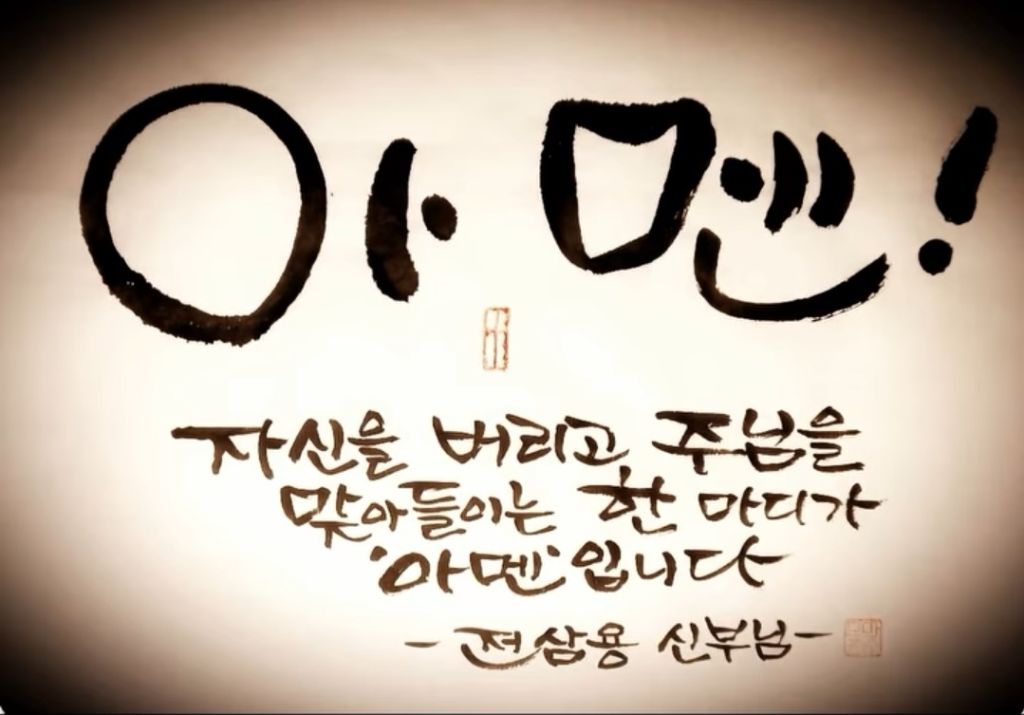 아멘!
자신을 버리고, 주님을
맞아들이는 한 마디가
'아멘'입니다
- 전삼용 신부님 -